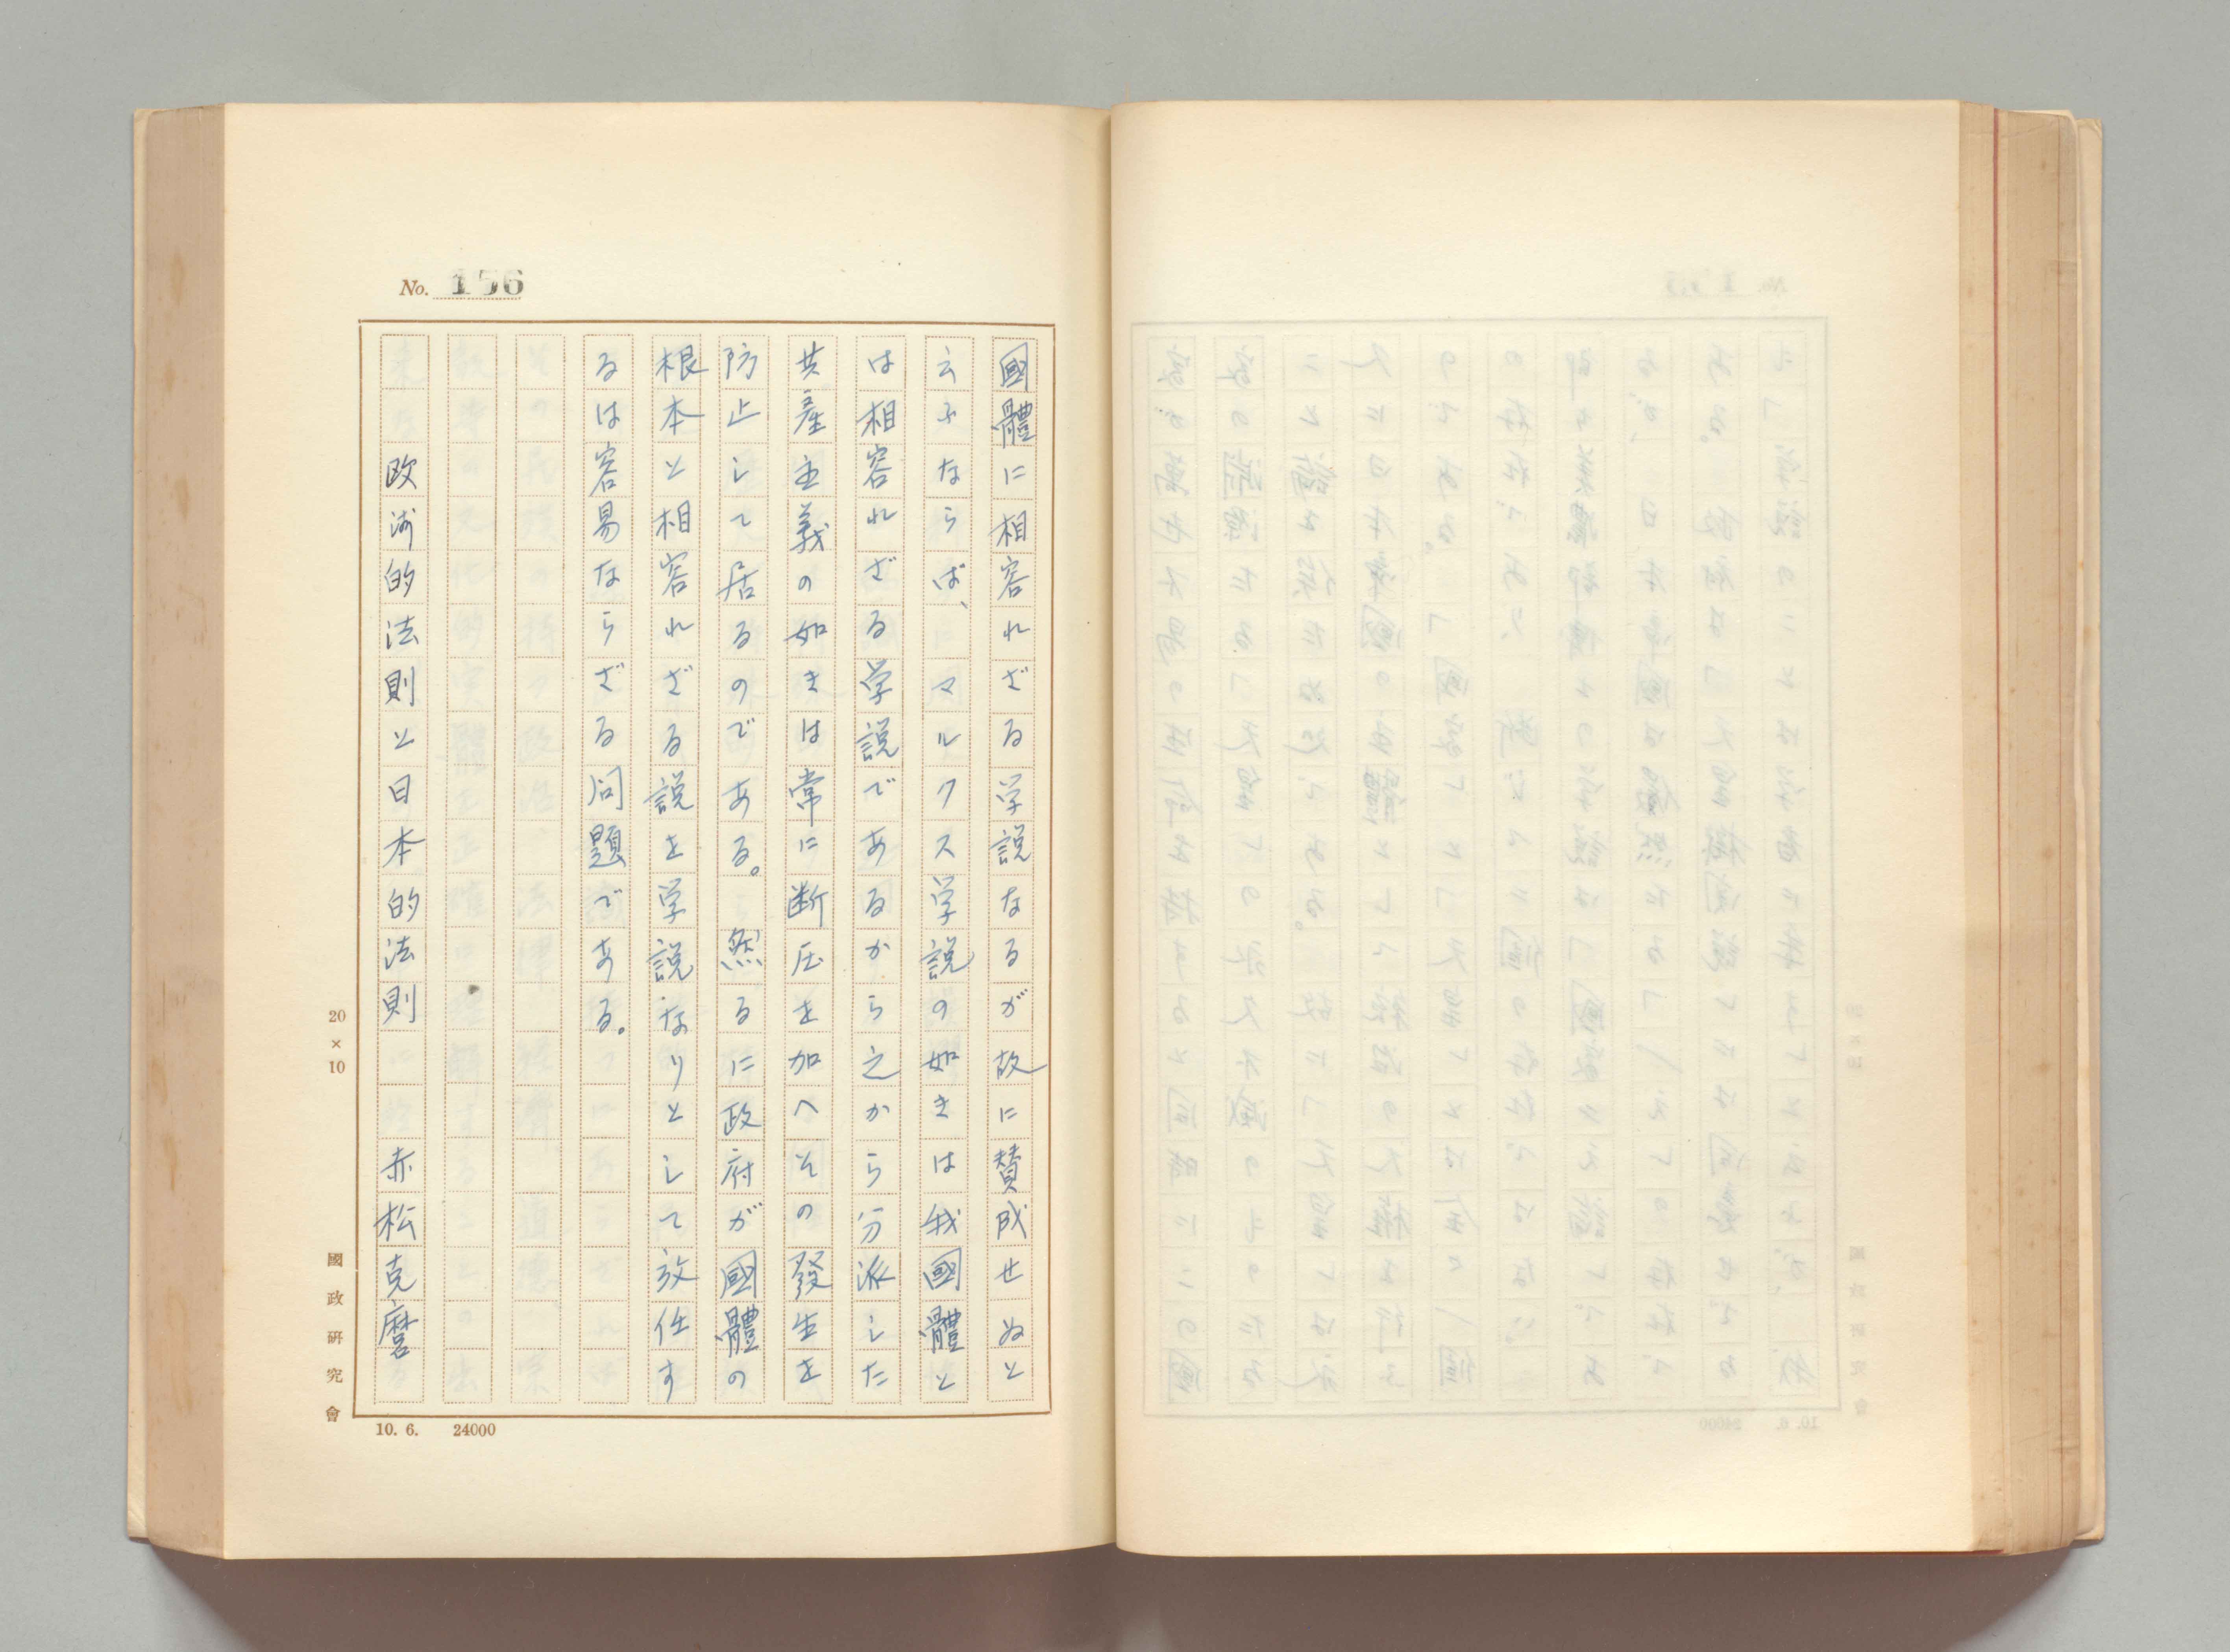 No. 156
國體に相容れざる学説なるが故に賛成せぬと
云ふならば、マルクス学説の如きは我國體と
は相容れざる学説であるから之から分派した
共産主義の如きは常に断圧を加へその發生を
防止して居るのである。然るに政府が國體の
根本と相容れざる説を学説なりとして放任す
るは容易ならざる問題である。
欧洲的法則と日本的法則 赤松克麿
20×10
國政研究會
10. 6. 24000